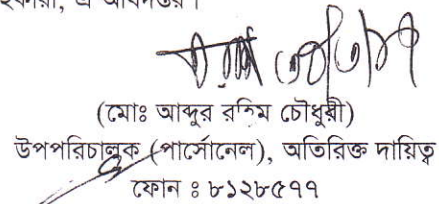 এ অধিদপ্তর।
(মোঃ আব্দুর রহিম চৌধুরী)
উপপরিচালক (পার্সোনেল), অতিরিক্ত দায়িত্ব
ফোন ঃ ৮১২৮৫৭৭